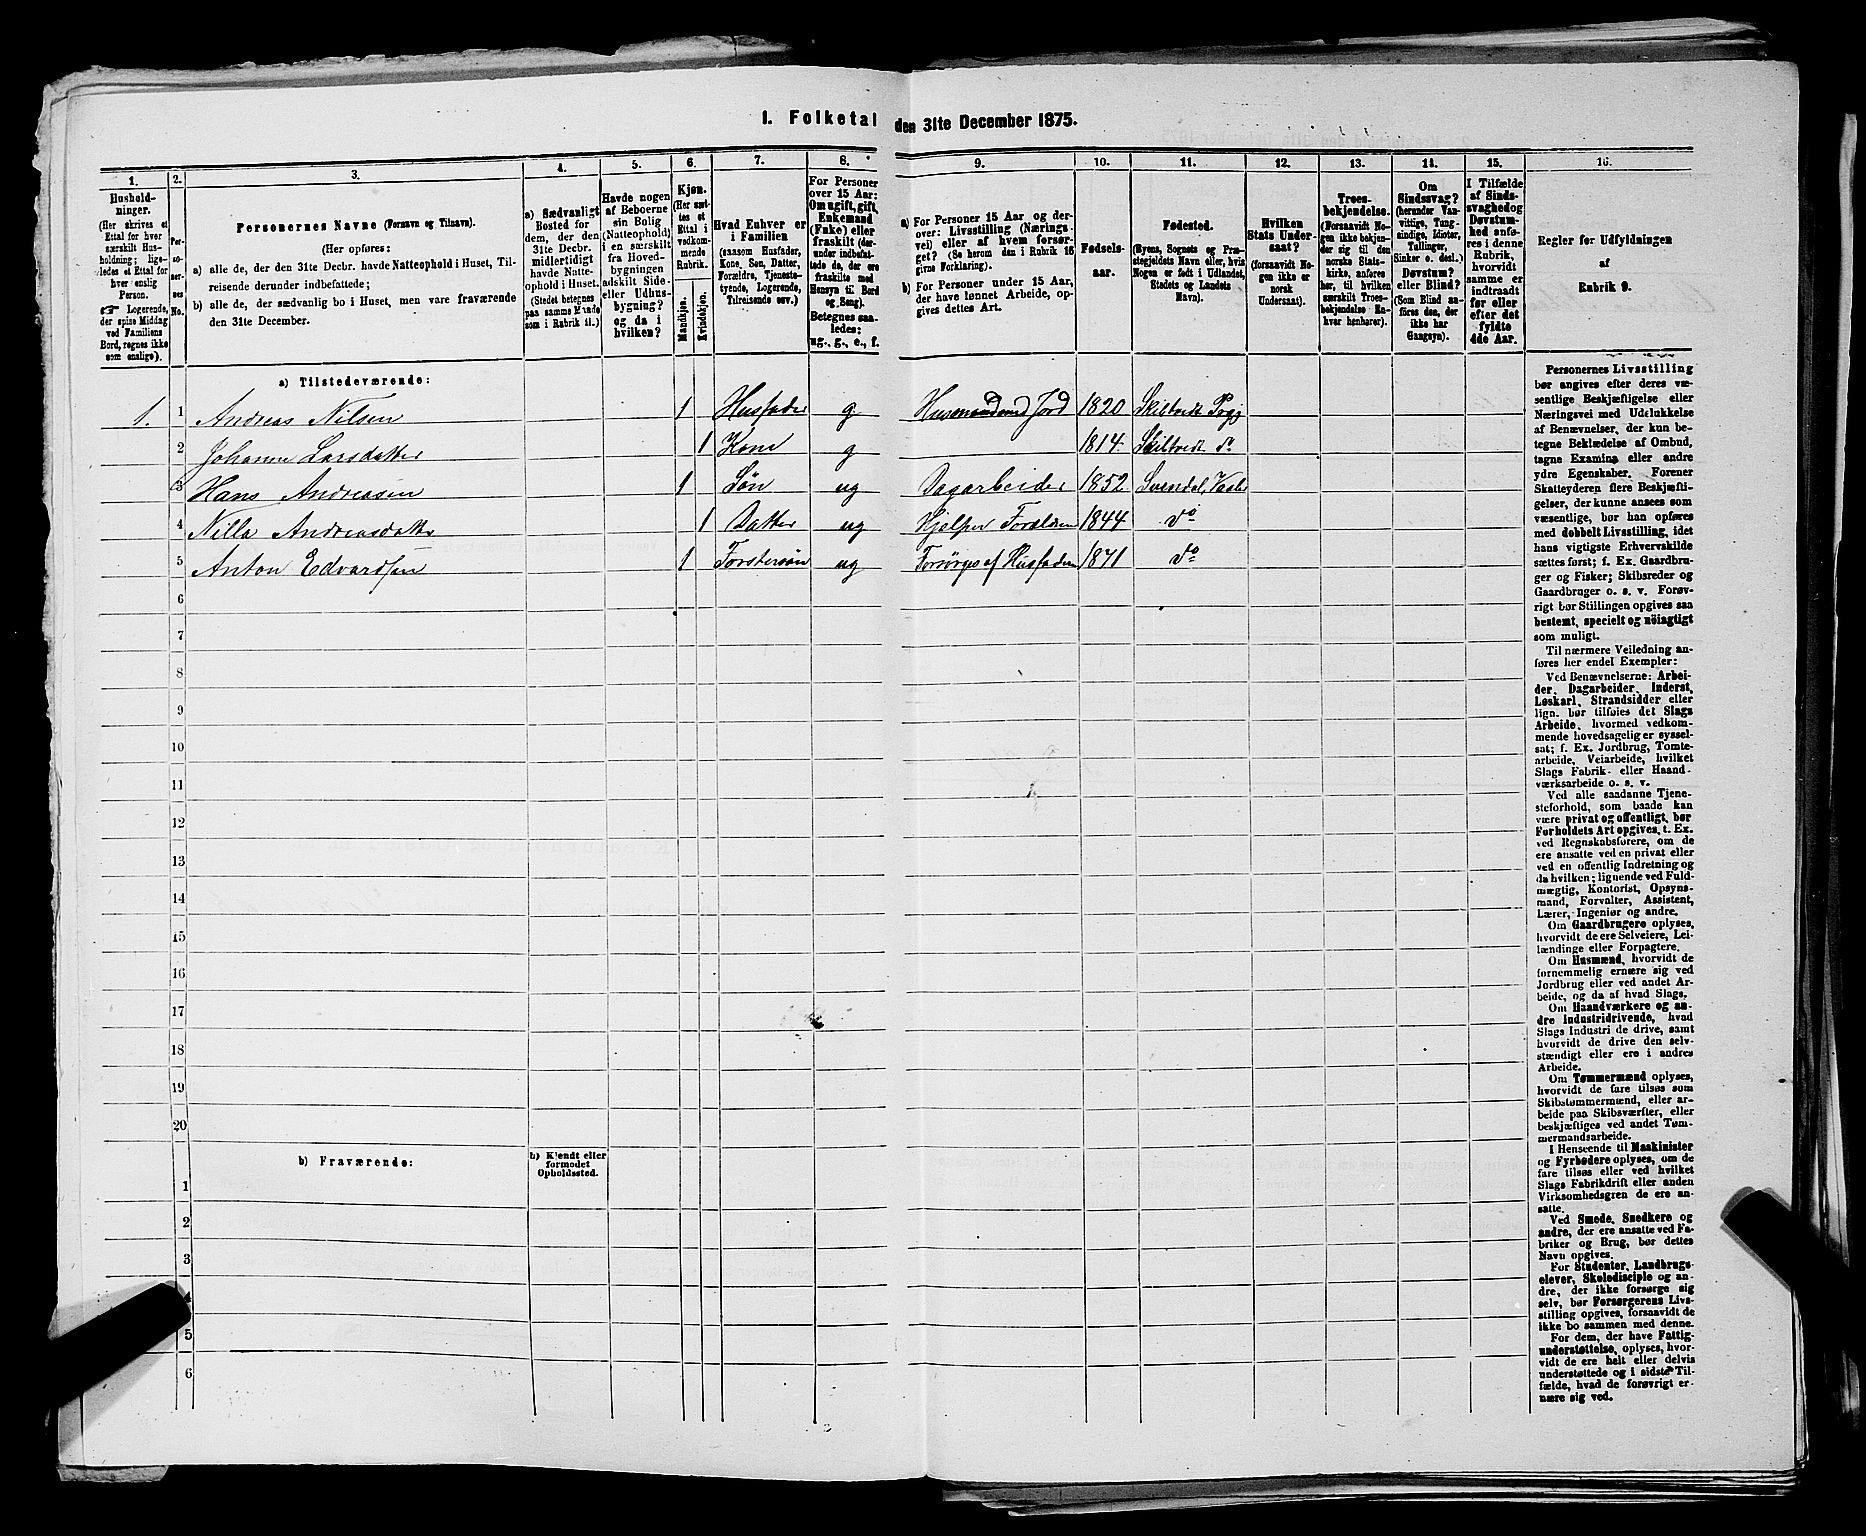 1. Folketal den 31te December 1875.
1. 2. 3. 4. 5. 6. 7. 8. 9. 10. 11. 12. 13. 14. 15. 16.
Hushold-
ninger.
(Her skrives et
Ettal for hver
særskilt Hus-
holdning; lige-
ledes et Ettal for
hver enslig
Person.
☛ Logerende,
der spise Middag
ved Familiens
Bord, regnes ikke
som enslige).
Per-
so-
ner-
nes
No.
Personernes Navne (Fornavn og Tilnavn).
(Her opføres:
a) alle de, der den 31te Decbr. havde Natteophold i Huset, Til-
reisende derunder indbefattede;
b) alle de, der sædvanlig bo i Huset, men vare fraværende
den 31te December.
a) Sædvanligt
Bosted for
dem, der den
31te Decbr.
midlertidigt
havde Natte-
ophold i Huset.
(Stedet betegnes
paa samme Maade
som i Rubrik 11.)
Havde nogen
af Beboerne
sin Bolig
(Natteophold)
i en særskilt
fra Hoved-
bygningen
adskilt Side-
eller Udhus-
bygning?
og da i
hvilken?
Kjøn.
(Her sæt-
tes et
Ettal i
vedkom-
mende
Rubrik.
Mandkjøn.
Kvindekjøn.
Hvad Enhver er
i Familien
(saasom Husfader,
Kone, Søn, Datter,
Forældre, Tjeneste-
tyende, Logerende,
Tilreisende osv.)
For Personer
over 15 Aar:
Om ugift, gift,
Enkemand
(Enke) eller
fraskilt (der-
under indbefat-
tede de, der ere
fraskilte med
Hensyn til Bord
og Seng).
Betegnes saa-
ledes:
ug., g., e., f.
a) For Personer 15 Aar og der-
over: Livsstilling (Nærings-
vei) eller af hvem forsør-
get? (Se herom den i Rubrik 16
givne Forklaring).
b) For Personer under 15 Aar,
der have lønnet Arbeide, op-
gives dettes Art.
Fødsels-
aar.
Fødested.
(Byens, Sognets og Præ-
stegjeldets Navn eller, hvis
Nogen er født i Udlandet,
Stedets og Landets
Navn).
Hvilken
Stats Under-
saat?
(forsaavidt No-
gen ikke er
norsk
Undersaat).
Troes-
bekjendelse.
(Forsaavidt No-
gen ikke bekjen-
der sig til den
norske Stats-
kirke, anføres
her, til hvilken
særskilt Troes-
bekjendelse En-
hver henhører).
Om
Sindssvag?
(herunder Van-
vittige, Tung-
sindige, Idioter,
Tullinger,
Sinker o. desl.)
Døvstum?
eller Blind?
(Som Blind an-
føres den, der
ikke har
Gangsyn).
I Tilfælde
af Sinds-
svaghed og
Døvstum-
hed anfø-
res i denne
Rubrik,
hvorvidt
samme er
indtraadt
før eller
efter det
fyldte
4de Aar.
Regler for Udfyldningen
af
Rubrik 9.
a) Tilstedeværende:
1. 1 Andreas Nilsen 1 Husfader g Husmand med Jord 1820 Skiltvedt Prgj
2 Johanne Larsdatter 1 Kone g 1814. Skiltvedt do
3 Hans Andreasen 1 Søn ug Dagarbeider 1852
4 Nilla Andreasdatter 1 Datter ug Hjelper Forældrene 1844 do
5 Anton Edvardsen 1 Fostersøn ug Forsørges af Husfaderen 1871 do
6
7
8
9
10
11
12
13
14
15
16
17
18
19
20
b) Fraværende:
b) Kjendt eller
formodet
Opholdssted.
1
2
3
4
5
6
Personernes Livsstilling
bør angives efter deres væ-
sentlige Beskjæftigelse eller
Næringsvei med Udelukkelse
af Benævnelser, der kun be-
tegne Beklædelse af Ombud,
tagne Examina eller andre
ydre Egenskaber. Forener
Skatteyderen flere Beskjæfti-
gelser, der kunne ansees som
væsentlige, bør han opføres
med dobbelt Livsstilling, idet
hans vigtigste Erhvervskilde
sættes først; f. Ex. Gaardbru-
ger og Fisker; Skibsreder og
Gaardbruger o. s. v. Forøv-
rigt bør Stillingen opgives saa
bestemt, specielt og nöiagtigt
som muligt.
Til nærmere Veiledning an-
føres her endel Exempler:
Ved Benævnelserne: Arbei-
der, Dagarbeider, Inderst,
Løskarl, Strandsidder eller
lign. bør tilføies det Slags
Arbeide, hvormed vedkom-
mende hovedsagelig er syssel-
sat; f. Ex. Jordbrug, Tomte-
arbeide, Veiarbeide, hvilket
Slags Fabrik- eller Haand-
værksarbeide o. s. v.
Ved alle saadanne Tjene-
steforhold, som baade kan
være privat og offentligt, bør
Forholdets Art opgives, t. Ex.
ved Regnskabsførere, om de
ere ansatte ved en privat eller
ved en offentlig Indretning og
da hvilken; lignende ved Fuld-
mægtig, Kontorist, Opsyns-
mand, Forvalter, Assistent,
Lærer, Ingeniør og andre.
Om Gaardbrugere oplyses,
hvorvidt de ere Selveiere, Lei-
lændinge eller Forpagtere.
Om Husmænd, hvorvidt de
fornemmelig ernære sig ved
Jordbrug eller ved andet Ar-
beide, og da af hvad Slags.
Om Haandværkere og an-
dre Industridrivende, hvad
Slags Industri de drive, samt
hvorvidt de drive den selv-
stændigt eller ere i andres
Arbeide.
Om Tømmermænd oplyses,
hvorvidt de fare tilsøs som
Skibstømmermænd, eller ar-
beide paa Skibsværfter, eller
beskjæftiges ved andet Tøm-
mermandsarbeide.
I Henseende til Maskinister
og Fyrbødere oplyses, om de
fare tilsøs eller ved hvilket
Slags Fabrikdrift eller anden
Virksomhedsgren de ere an-
satte.
Ved Smede, Snedkere og
andre, der ere ansatte ved Fa-
briker og Brug, bør dettes
Navn opgives.
For Studenter, Landbrugs-
elever, Skoledisciple og an-
dre, der ikke forsørge sig
selv, bør Forsørgerens Livs-
stilling opgives, forsaavidt de
ikke bo sammen med denne.
For dem, der have Fattig-
understøttelse, oplyses, hvor-
vidt de ere helt eller delvis
understøttede og i sidste Til-
fælde, hvad de forøvrigt er-
nære sig ved.